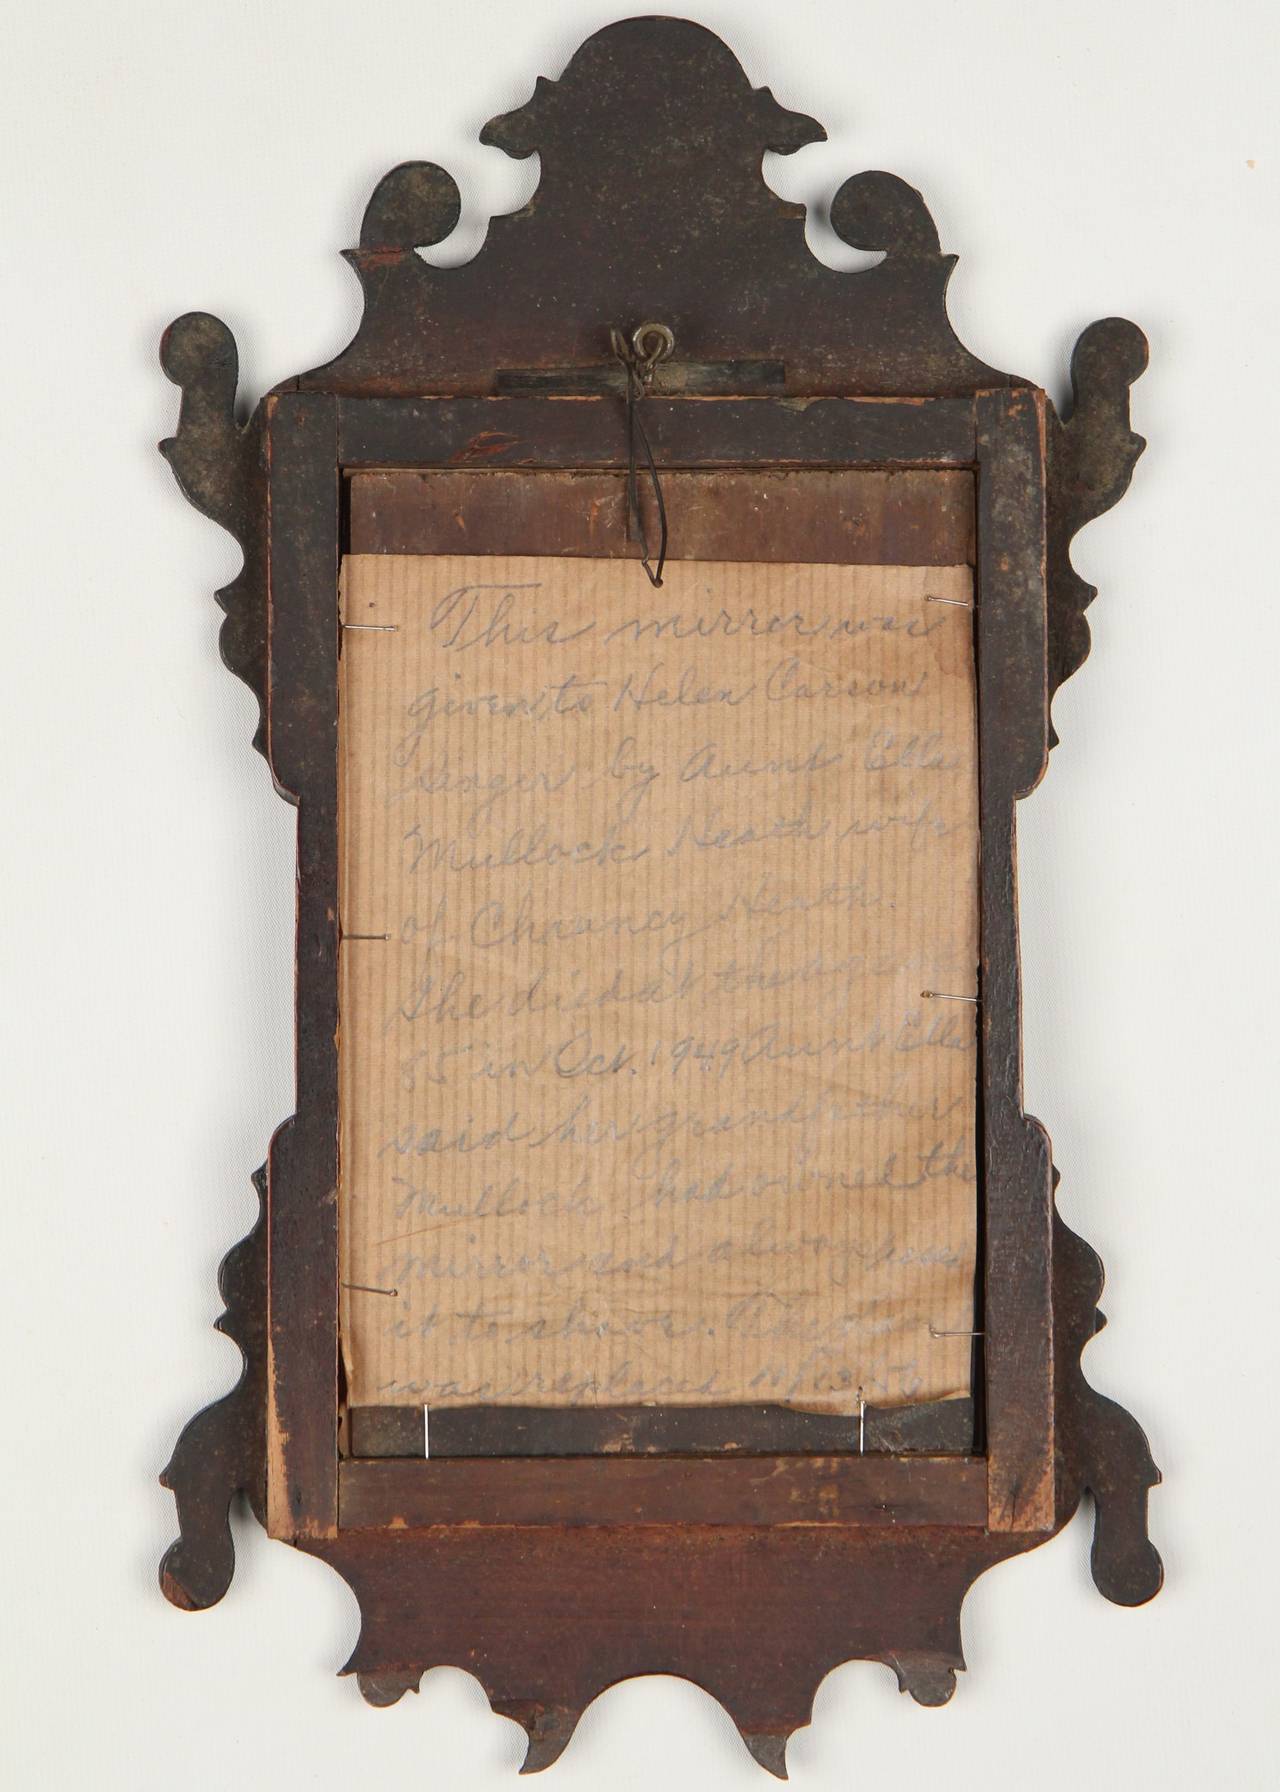 This mirror was
given to Helen Carson
Singer by Aunt Ella
Mullock Heath wife
of Chauncy Heath.
She died at the age of
85 in Oct. 1949 Aunt Ella
said her grandfather
Mullock had owned the
mirror and always used
it to shave. The
was replaced 11/13/56